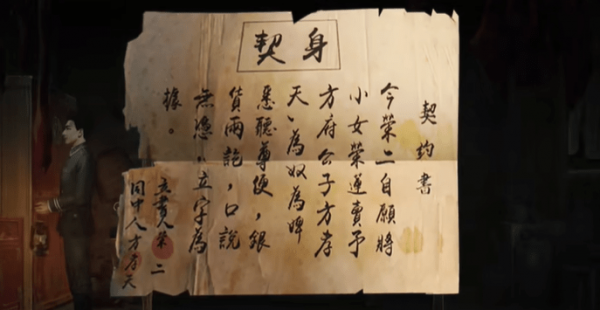 契身
契約書
今榮二自願將
小女榮蓮賣予
方府公子方孝
天，為奴為婢
悉聽尊便，銀
貨兩訖，口說
無憑，立字為
據。
立書人榮二
同中人方孝天